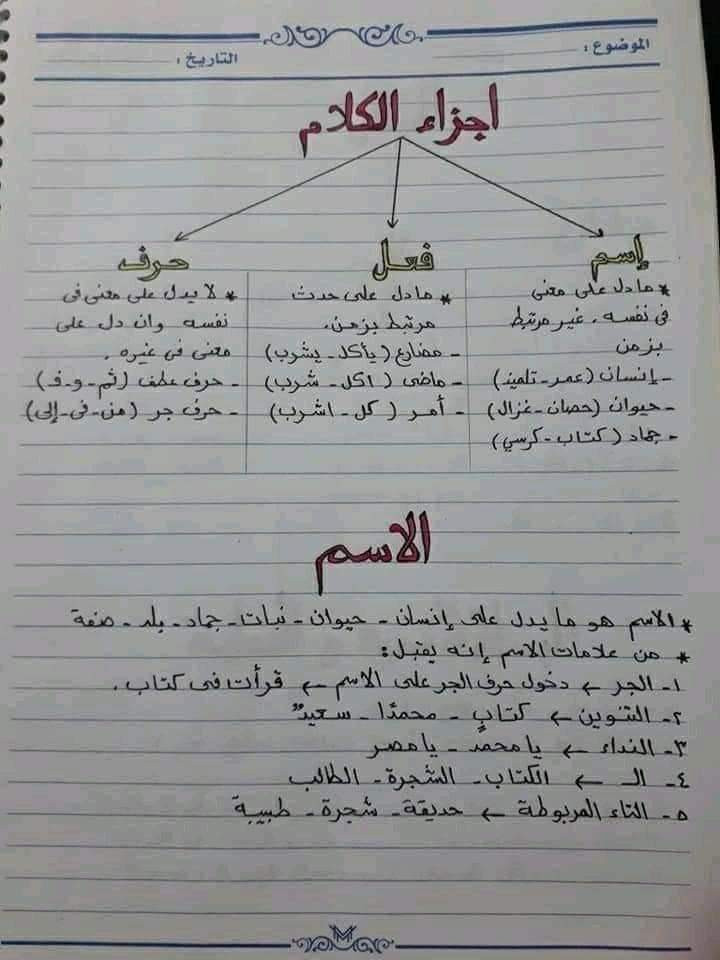 الموضوع :
التاريخ :
اجزاء الكلام
إسم
* ما دل على معنى
فى نفسه . غير مرتبط
بزمن
- إنسان (عمر - تلميذ)
- حيوان (حصان - غزال)
- جماد (كتاب - كرسي)
فعل
* ما دل على حدث
مرتبط بزمن .
- مضارع (يأكل - يشرب)
- ماضى (اكل - شرب)
- أمر (كل - اشرب)
حرف
* لا يدل على معنى فى
نفسه وان دل على
معنى فى غيره .
- حرف عطف (ثم - و - ف)
- حرف جر (من - فى - إلى)
الاسم
* الاسم هو ما يدل على إنسان - حيوان - نبات - جماد - بلد - صفة
* من علامات الاسم إنه يقبل :
١- الجر ← دخول حرف الجر على الاسم ← قرأت فى كتاب .
٢- التنوين ← كتابٍ - محمدًا - سعيدٌ
٣- النداء ← يا محمد - يا مصر
٤- الـ ← الكتاب - الشجرة - الطالب
٥- التاء المربوطة ← حديقة - شجرة - طبيبة